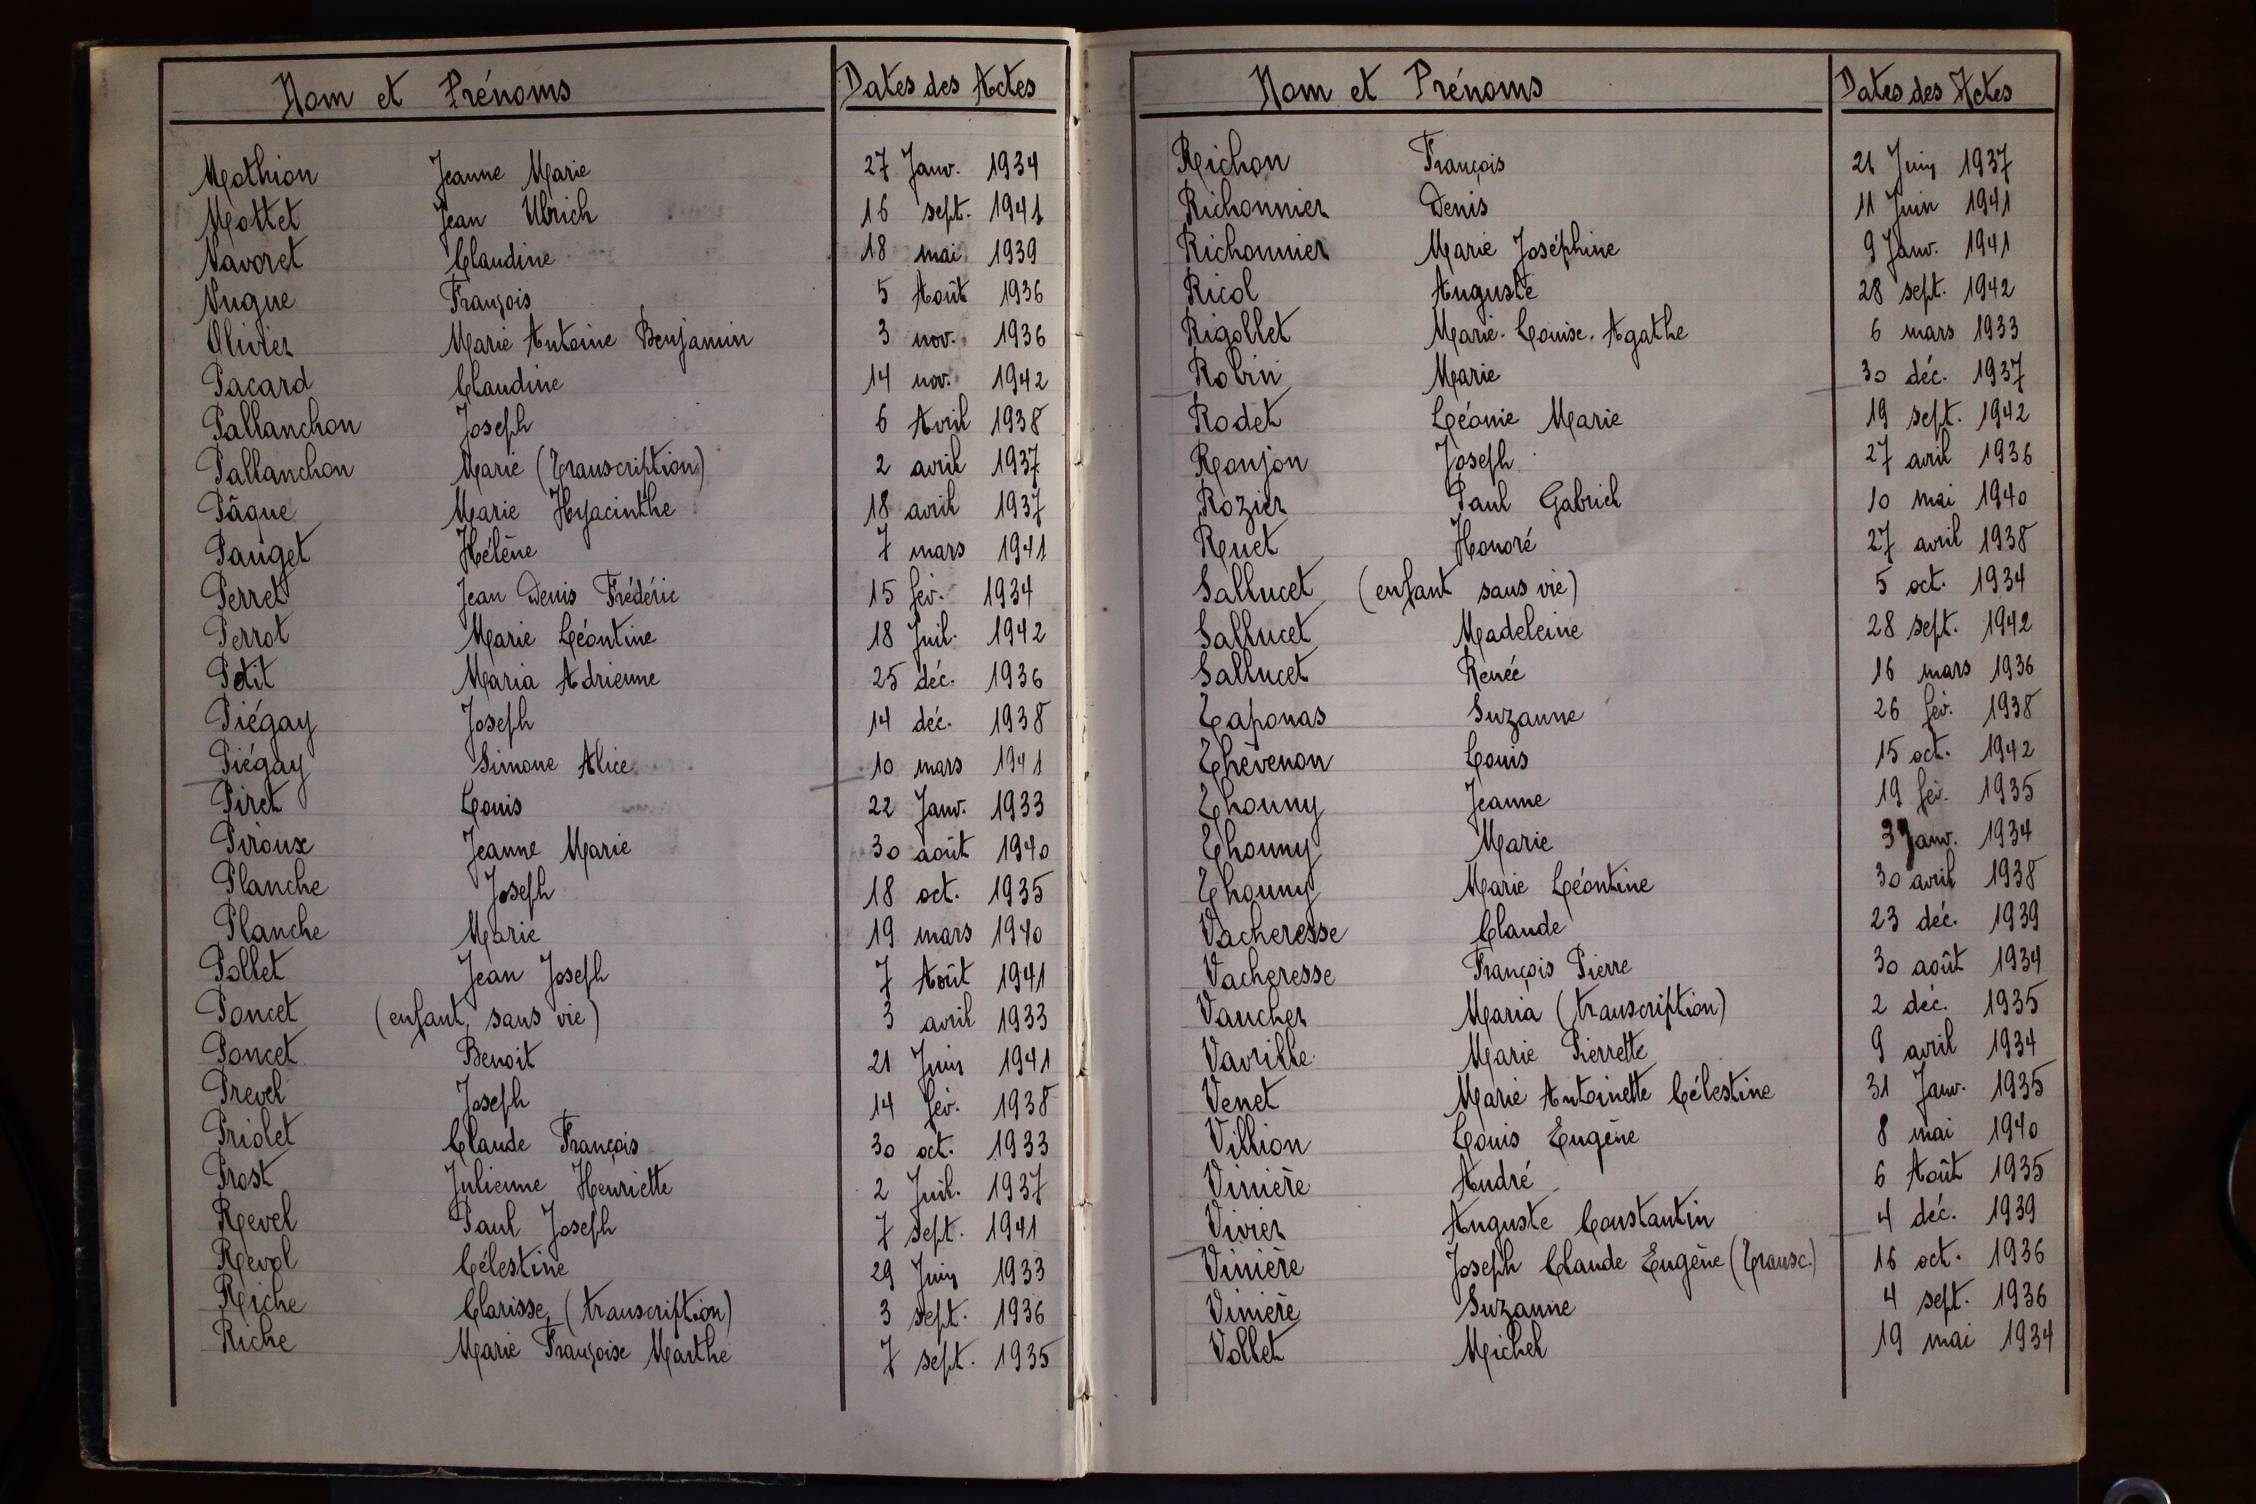 Nom et Prénoms Dates des Actes
Mathion Jeanne Marie 27 Janv. 1934
Mottet Jean Ulrich 16 sept. 1941
Navoret Claudine 18 mai 1939
Nugue François 5 Août 1936
Olivier Marie Antoine Benjamin 3 nov. 1936
Pacard Claudine 14 nov. 1942
Pallanchon Joseph 6 Avril 1938
Pallanchon Marie (Transcription) 2 avril 1937
Pâque Marie Hyacinthe 18 avril 1937
Pauget Hélène 7 mars 1941
Perret Jean Denis Frédéric 15 fév. 1934
Perrot Marie Léontine 18 Juil. 1942
Petit Maria Adrienne 25 déc. 1936
Piégay Joseph 14 déc. 1938
Piégay Simone Alice 10 mars 1941
Piret Louis 22 Janv. 1933
Piroux Jeanne Marie 30 août 1940
Planche Joseph 18 oct. 1935
Planche Marie 19 mars 1940
Pollet Jean Joseph 7 Août 1941
Poncet (enfant sans vie) 3 avril 1933
Poncet Benoit 21 Juin 1941
Prevel Joseph 14 fév. 1938
Priolet Claude François 30 oct. 1933
Prost Julienne Henriette 2 Juil. 1937
Revel Paul Joseph 7 sept. 1941
Revol Célestine 29 Juin 1933
Riche Clarisse (transcription) 3 sept. 1936
Riche Marie Françoise Marthe 7 sept. 1935
Nom et Prénoms Dates des Actes
Richon François 21 Juin 1937
Richonnier Denis 11 Juin 1941
Richonnier Marie Joséphine 9 Janv. 1941
Ricol Auguste 28 sept. 1942
Rigollet Marie. Louise. Agathe 6 mars 1933
Robin Marie 30 déc. 1937
Rodet Léonie Marie 19 sept. 1942
Ronjon Joseph 27 avril 1936
Rozier Paul Gabriel 10 mai 1940
Ruet Honoré 27 avril 1938
Sallucet (enfant sans vie) 5 oct. 1934
Sallucet Madeleine 28 sept. 1942
Sallucet Renée 16 mars 1936
Taponas Suzanne 26 fév. 1938
Thévenon Louis 15 oct. 1942
Thouny Jeanne 19 fév. 1935
Thouny Marie Janv. 1934
Thouny Marie Léontine 30 avril 1938
Vacheresse Claude 23 déc. 1939
Vacheresse François Pierre 30 août 1934
Vaucher Maria (transcription) 2 déc. 1935
Vavrille Marie Pierrette 9 avril 1934
Venet Marie Antoinette Célestine 31 Janv. 1935
Villion Louis Eugène 8 mai 1940
Vinière André 6 Août 1935
Vivier Auguste Constantin 4 déc. 1939
Vinière Joseph Claude Eugène (Transc.) 16 oct. 1936
Vinière Suzanne 4 sept. 1936
Vollet Michel 19 mai 1934